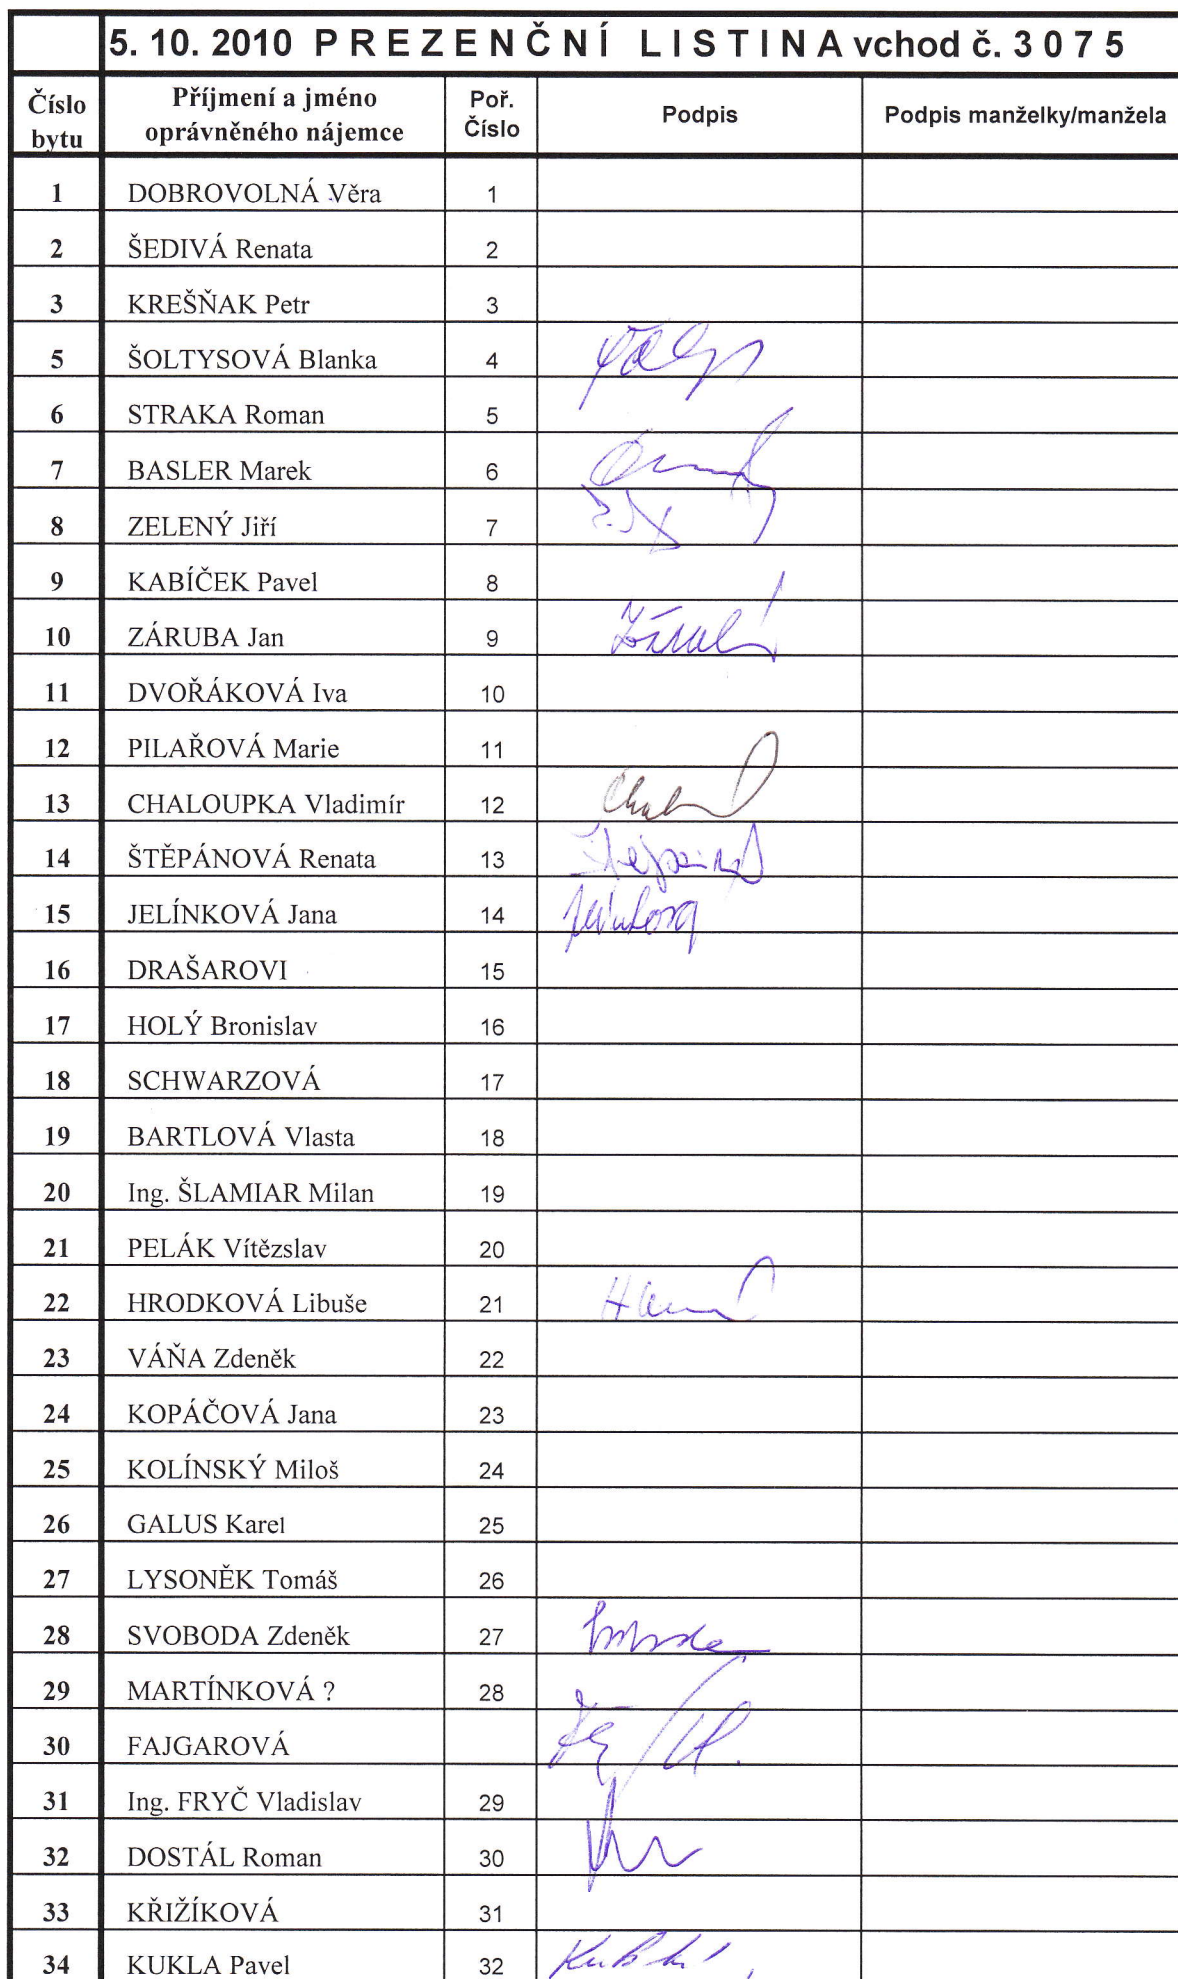 5. 10. 2010 P R E Z E N Č N Í L I S T I N A vchod č. 3 0 7 5
Číslo bytu Příjmení a jméno oprávněného nájemce Poř. Číslo Podpis Podpis manželky/manžela
1 DOBROVOLNÁ Věra 1
2 ŠEDIVÁ Renata 2
3 KREŠŇAK Petr 3
5 ŠOLTYSOVÁ Blanka 4
6 STRAKA Roman 5
7 BASLER Marek 6
8 ZELENÝ Jiří 7
9 KABÍČEK Pavel 8
10 ZÁRUBA Jan 9
11 DVOŘÁKOVÁ Iva 10
12 PILAŘOVÁ Marie 11
13 CHALOUPKA Vladimír 12
14 ŠTĚPÁNOVÁ Renata 13
15 JELÍNKOVÁ Jana 14
16 DRAŠAROVI 15
17 HOLÝ Bronislav 16
18 SCHWARZOVÁ 17
19 BARTLOVÁ Vlasta 18
20 Ing. ŠLAMIAR Milan 19
21 PELÁK Vítězslav 20
22 HRODKOVÁ Libuše 21
23 VÁŇA Zdeněk 22
24 KOPÁČOVÁ Jana 23
25 KOLÍNSKÝ Miloš 24
26 GALUS Karel 25
27 LYSONĚK Tomáš 26
28 SVOBODA Zdeněk 27
29 MARTÍNKOVÁ ? 28
30 FAJGAROVÁ
31 Ing. FRYČ Vladislav 29
32 DOSTÁL Roman 30
33 KŘIŽÍKOVÁ 31
34 KUKLA Pavel 32